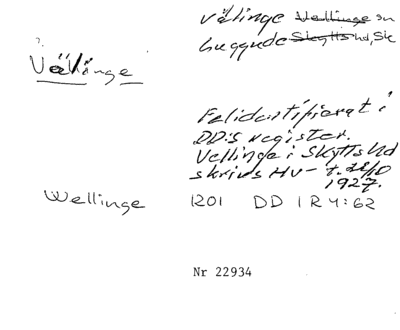 välinge Vellinge sn
huggude Skytts hd, Sk
?
Välinge
Felidentifierat i
DD:s register.
Vellinge i Skytts hd
skrivs HV-
1927.
Wellinge 1201 DD I R 4:62
Nr 22934